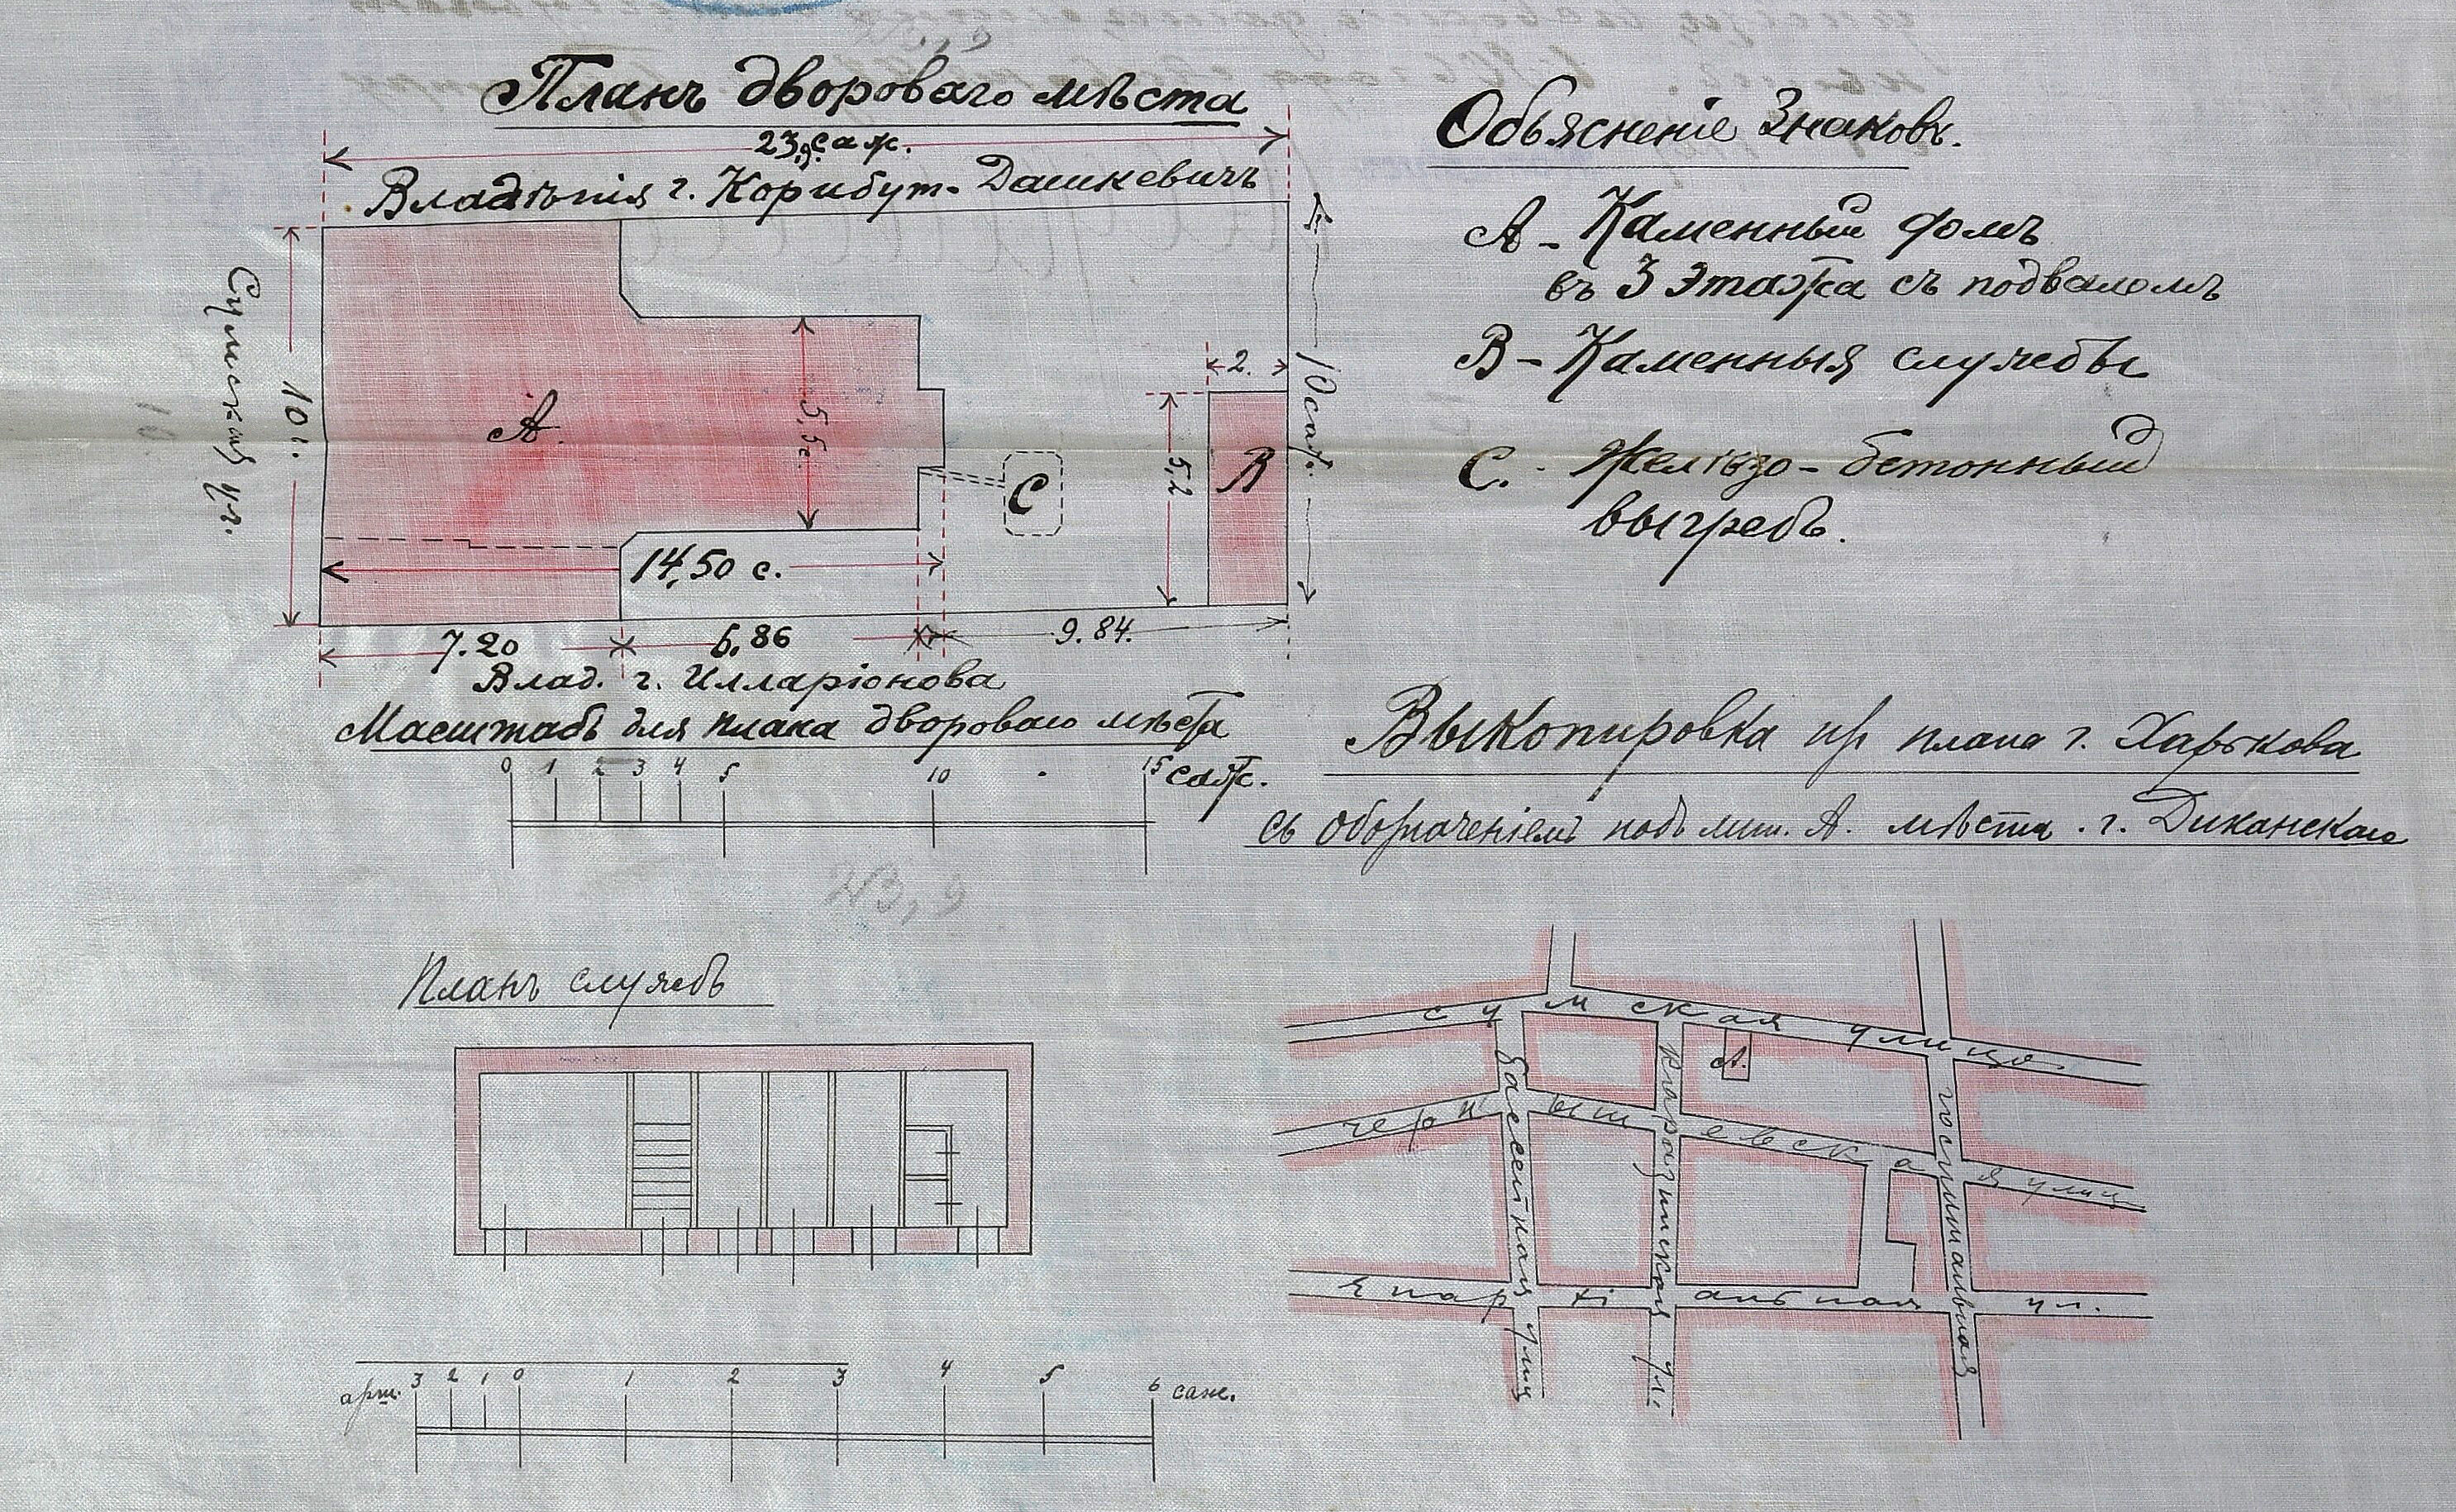 Планъ двороваго мѣста
23,9 саж.
Владѣнія г. Корибут-Дашкевичъ
Сумская ул.
10 с.
А.
5,5 с.
14,50 с.
С
5,2
2.
В
10 саж.
7.20
6,86
9.84.
Влад. г. Илларіонова
Масштабъ для плана двороваго мѣста
0 1 2 3 4 5 10 15 саж.
Объясненіе Знаковъ.
А - Каменный домъ
въ 3 этажа съ подваломъ
В - Каменныя службы
С. - Желѣзо-бетонный
выгребъ.
Выкопировка из плана г. Харькова
съ обозначеніемъ подъ лит. А. мѣста г. Диканскаго
43,9
Планъ службъ
арш. 3 2 1 0 1 2 3 4 5 6 саж.
Сумская улица
А.
Чернышевская улиц
Епархіальная ул.
Бассейная улиц
Каразинская ул.
Госпитальная